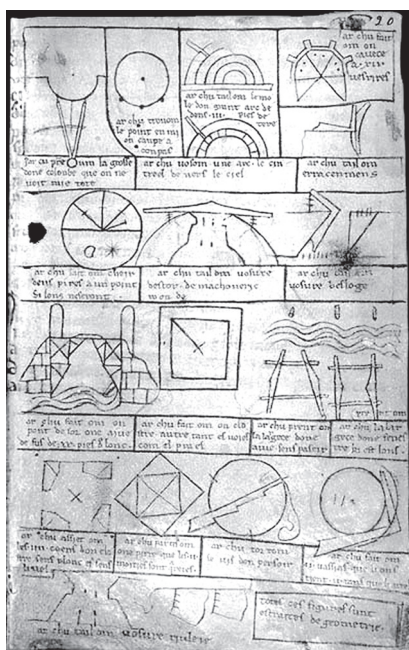 20
ar chu fait
om on
cavece
a .xii.
vesrires
ar chu trovom
le point en mi
on canpe a
conpas
ar chu tail om le mo
le don grant arc de
dens .iii. pies de
tere
ar chu pre om la grosse
done colonbe que on ne
voit mie tote
ar chu vosom une arc le cin
treel de vers le ciel
ar chu tail om
erracemens
ar chu fait om cheir
deus pires a un point
si lons ne seront
ar chu tail om vosure
destor de machonerie
roonde
ar chu tail om
vosure besloge
ar chu fait om on
pont desor one aive
de fus de .xx. pies d lonc
ar chu fait om on clo
stre autre tant es voies
com el prael
ar chu prent om
la largece done
aive sens paseir
ar chu
largece done fenes
tre ki est lons
ar chu assiet om
les .iiii. coens don clo
stre sens plonc et sens
livel
ar chu partis om
one pirre que les .ii.
moities sont
ar chu tornom
le vis don persoir
ar chu fait om
.ii. vassias que li ons
tient .ii. tans que
ar chu tail om vosure riuleie
totes ces figures sunt
estraites de geometrie